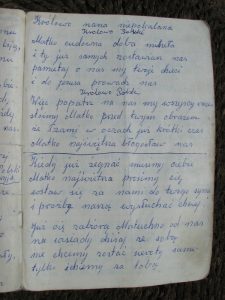 Królowo nasza niepokalana
Królowo Polski
Matko cudowna doba minęła
i ty już samych zostawiasz nas
pamiętaj o nas my twoje dzieci
i do Jezusa prowadź nas
Królowo Polski
Więc popatrz na nas my wszyscy
stoimy Matko przed twoim obrazem
ze łzami w oczach już krótki czas
Matko najświętsza błogosław nas
Kiedy już żegnać musimy ciebie
Matko najświętsza prosimy cię
wstaw się za nami do twego syna
i prośbę naszą wysłuchać chciej
Już cię zabiorą Matuchno od nas
na sąsiady dzisiaj ze sobą
nie chcemy zostać sieroty same
tylko idziemy za tobą